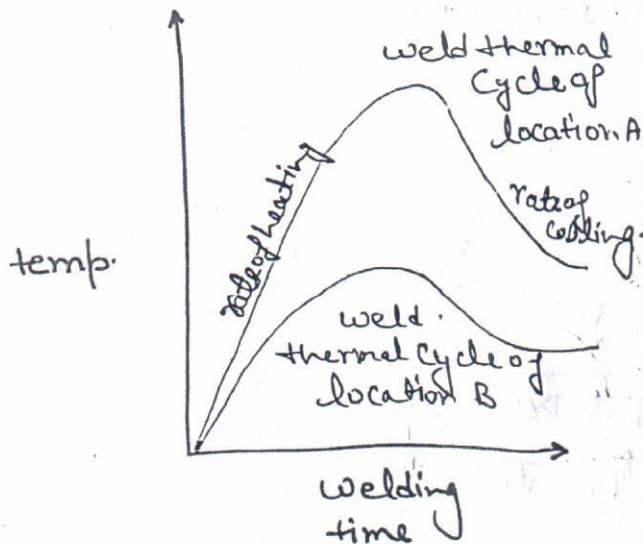 weld thermal
Cycle of
location A
rate of heating
rate of
cooling.
temp.
weld.
thermal cycle of
location B
welding
time